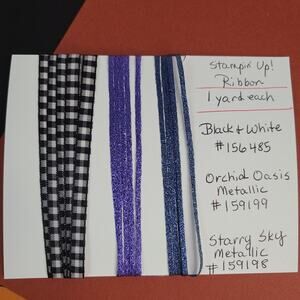 Stampin' Up!
Ribbon
1 yard each
Black & White
#156485
Orchid Oasis
Metallic
#159199
Starry Sky
Metallic
#159198